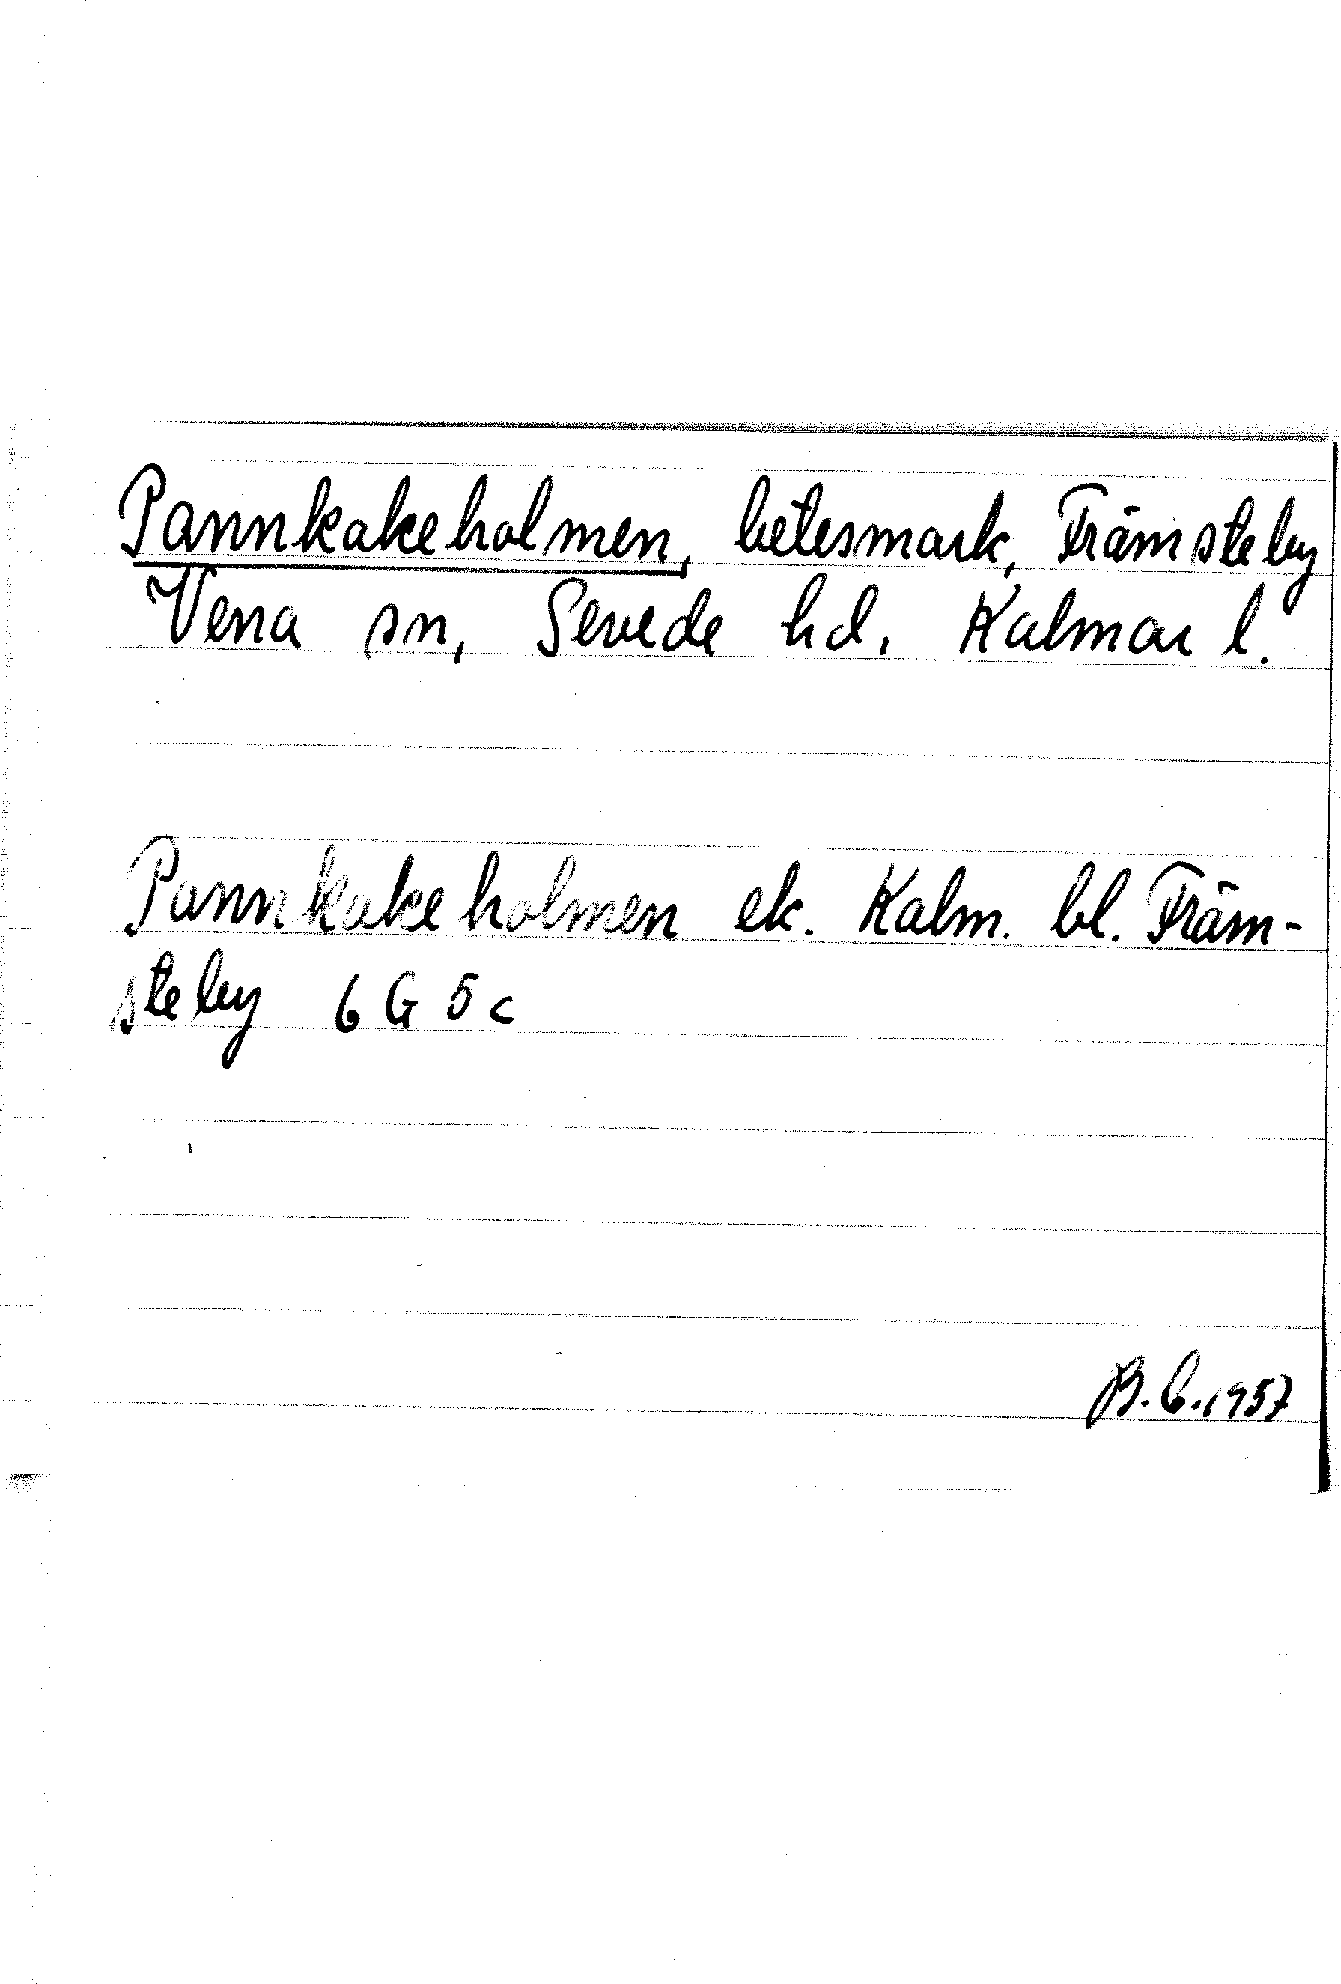 Pannkakeholmen, betesmark, Främsteby
Vena sn, Sevede hd. Kalmar l.
Pannkakeholmen ek. Kalm. bl. Främ-
steby 6 G 5 c
B.C.1957